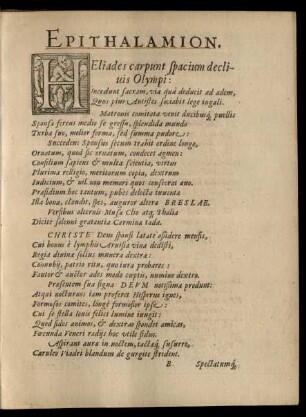 EPITHALAMION.
HEliades carpunt spacium decli-
uis Olympi:
Incedunt sacram, via quà deducit ad ædem,
Quos pius Antistes sociabit lege iugali.
Matronis comitata venit ducibusq́; puellis
Sponsa ferens medio se gressu, splendida mundo
Turba suo, melior forma, sed summa pudore:
Succedens Sponsus secum trahit ordine longo,
Ornatum, quod sic ornatum, condecet agmen:
Consilium sapiens & multa scientia, virtus
Plurima religio, meritorum copia, dextrum
Iudicium, & usu non memori quos consecrat æuo.
Præsidium hoc tantum, pubes delecta iuuenta
Illa bona, claudit, spes, auguror altera BRESLAE.
Versibus alternis Musa Clio atq́; Thalia
Dicite solenni gratantia Carmina tæda.
CHRISTE Dem sponsi latate assidere mensis,
Cui bonus è lymphis Aruisia vina dedisti,
Regia diuinæ filius munera dextræ:
Connubij, patrio ritu, quo iura probares:
Fautor & auctor ades modo coptis, numine dextro.
Præsentem sua signa DEVM notissima produnt:
Atqui nocturnis iam proferet Hesperus ignes,
Formosus comites, longè formosior ipse:
Cui se stella leuis felici lumine iungit:
Quod fidos animos, & dextras spondet amicas,
Fœcunda Veneri radijs hoc utile sidus.
Aspirant auræ in noctem, tacitoq́; susurro,
Cærulei Viadri blandum de gurgite strident.
B Spectatumq́;